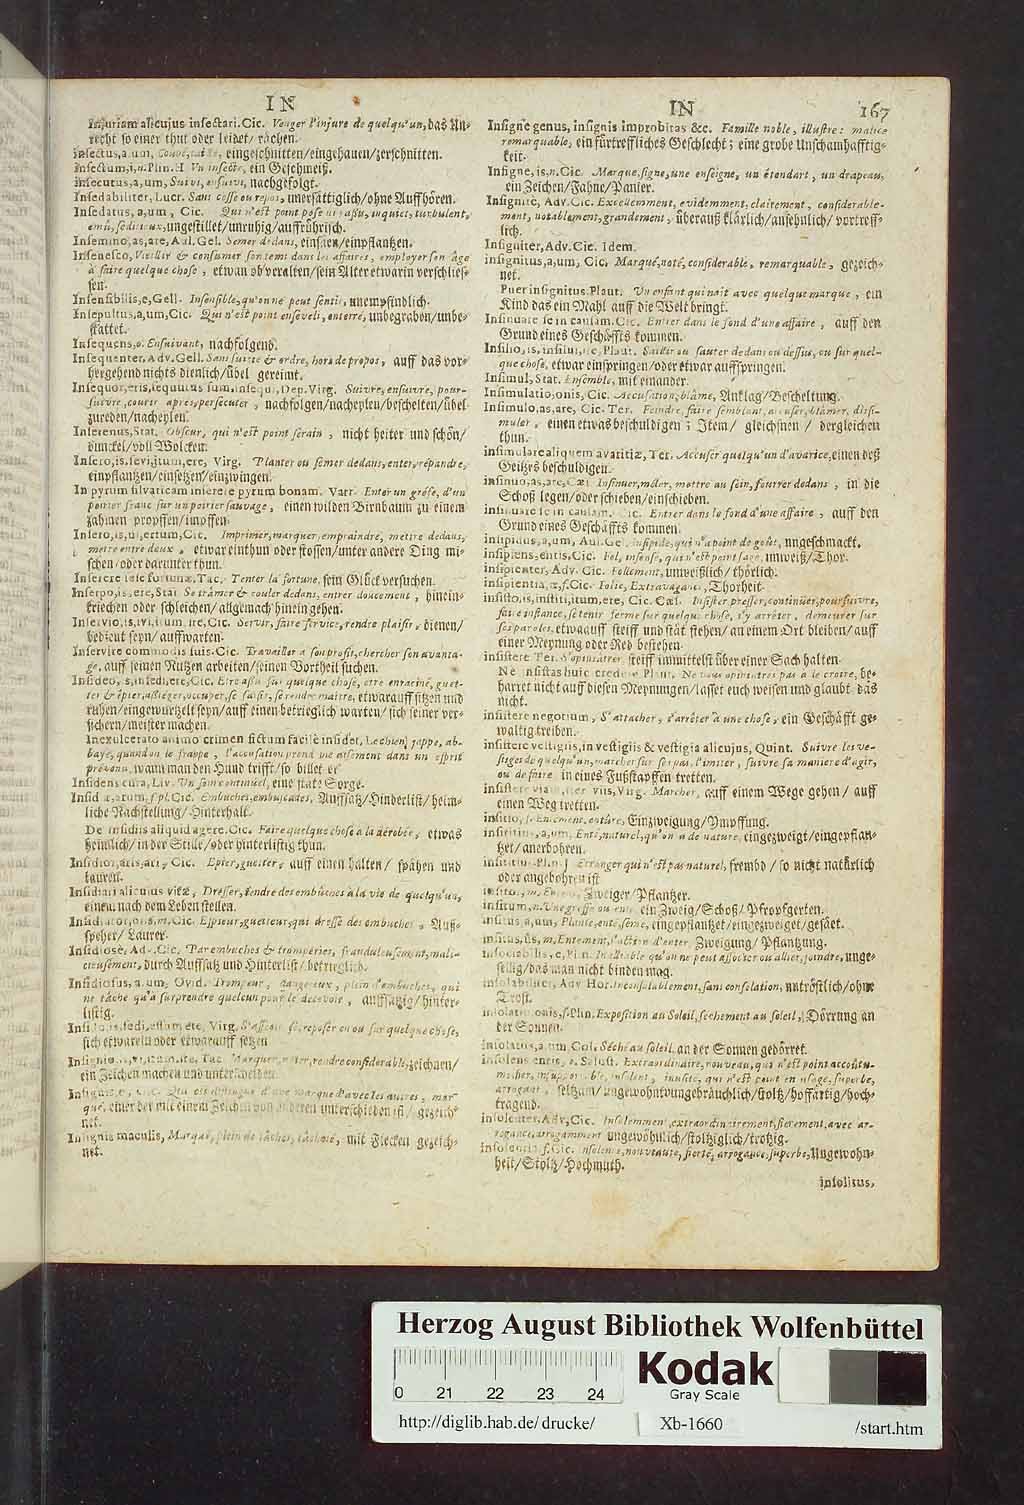 IN
Injuriam alicujus insectari. Cic. Venger l'injure de quelqu'un, das Un-
recht so einer thut oder leidet/ rächen.
Insectus, a, um, eingeschnitten/eingehauen/zerschnitten.
Insectum, i, n. Plin. Un insecte, ein Geschmeiß.
Insecutus, a, um, Suivi, ensuivi, nachgefolgt.
Insedabiliter, Lucr. Sans cesse ou repos, unersättiglich/ohne Auffhören.
Insedatus, a, um, Cic. Qui n'est point posé ni rassis, inquiet, turbulent,
emû, seditieux, ungestillet/unruhig/auffrührisch.
Insemino, as, are, Aul. Gel. Semer dedans, einsäen/einpflantzen.
Insenesco, Vieillir & consumer son tems dans les affaires, employer son âge
à faire quelque chose, etwan ob veralten/sein Alter etwarin verschlies-
sen.
Insensibilis, e, Gell. Insensible, qu'on ne peut sentir, unempfindlich.
Insepultus, a, um, Cic. Qui n'est point enseveli, enterré, unbegraben/unbe-
stattet.
Insequens, o. Ensuivant, nachfolgend.
Insequenter, Adv. Gell. Sans suitte & ordre, hors de propos, auff das vor-
hergehend nichts dienlich/übel gereimt.
Insequor, eris, sequutus sum, insequi, Dep. Virg. Suivre, ensuivre, pour-
suivre, courir apres, persecuter, nachfolgen/nacheylen/beschelten/übel
zureden/nacheylen.
Inserenus, Stat. Obscur, qui n'est point serain, nicht heiter und schön/
dunckel/voll Wolcken.
Insero, is, sevi, itum, ere, Virg. Planter ou semer dedans, enter, répandre,
einpflantzen/einsetzen/einzwingen.
In pyrum silvaticam inserere pyrum bonam. Varr. Enter un gréfe, d'un
poirier franc sur un poirier sauvage, einen wilden Birnbaum zu einem
zahmen propffen/impffen.
Insero, is, ui, ertum, Cic. Imprimer, marquer, empraindre, mettre dedans,
mettre entre deux, etwar einthun oder stossen/unter andere Ding mi-
schen/oder darunter thun.
Inserere sese fortunæ, Tac. Tenter la fortune, sein Glück versuchen.
Inserpo, is, ere, Stat. Se trâmer & couler dedans, entrer doucement, hinein-
kriechen oder schleichen/allgemach hinein gehen.
Inservio, is, ivi, itum, ire, Cic. Servir, faire service, rendre plaisir, dienen/
bedient seyn/auffwarten.
Inservire commodis suis. Cic. Travailler à son profit, chercher son avanta-
ge, auff seinen Nutzen arbeiten/seinen Vortheil suchen.
Insideo, es, insedi, ere, Cic. Etre assis sur quelque chose, être enraciné, guet-
ter & épier, assiéger, occuper, se saisir, se rendre maître, etwarauff sitzen und
ruhen/eingewurtzelt seyn/auff einen betrieglich warten/sich seiner ver-
sichern/meister machen.
Inexulcerato animo crimen fictum facilè insidet, Le chien jappe, ab-
baye, quand on le frappe, l'accusation prend vie aisement dans un esprit
prévenu, wann man den Hund trifft/so billet er.
Insidens cura, Liv. Un soin continuel, eine stäte Sorge.
Insidiæ, arum, f. pl. Cic. Embuches, embuscades, Auffsatz/Hinderlist/heim-
liche Nachstellung/Hinterhalt.
De insidiis aliquid agere. Cic. Faire quelque chose à la dérobée, etwas
heimlich/in der Stille/oder hinterlistig thun.
Insidior, aris, ari, Cic. Epier, guetter, auff einen halten/ spähen und
lauren.
Insidiari alicujus vitæ, Dresser, tendre des embûches à la vie de quelqu'un,
einem nach dem Leben stellen.
Insidiator, oris, m. Cic. Espieur, guetteur, qui dresse des embuches, Auß-
späher/ Laurer.
Insidiosè, Adv. Cic. Par embuches & tromperies, frauduleusement, mali-
cieusement, durch Auffsatz und Hinterlist/betrieglich.
Insidiosus, a, um, Ovid. Trompeur, dangereux, plein d'embuches, qui
ne tâche qu'à surprendre quelcun pour le decevoir, auffsatzig/hinter-
listig.
Insido, is, sedi, essum, ere, Virg. S'asseoir se reposer en ou sur quelque chose,
sich etwarein oder etwarauff setzen
Insignio, is, ivi, itum, ire, Tac. Marquer, noter, rendre considerable, zeichnen/
ein Zeichen machen und unterscheiden.
einer der mit einem Zeichen von anderen unterschieden ist/ gezeich-
net.
Insignis maculis, Marqué, plein de tâches, tâcheté, mit Flecken gezeich-
net.
IN
167
Insigne genus, insignis improbitas &c. Famille noble, illustre: malice
remarquable, ein fürtreffliches Geschlecht; eine grobe Unschamhafftig-
keit.
Insigne, is, n. Cic. Marque, signe, une enseigne, un étendart, un drapeau,
ein Zeichen/Fahne/Panier.
Insignitè, Adv. Cic. Excellemment, evidemment, clairement, considerable-
ment, notablement, grandement, überauß klärlich/ansehnlich/vortreff-
lich.
Insigniter, Adv. Cic. Idem.
insignitus, a, um, Cic. Marqué, noté, considerable, remarquable, gezeich-
net.
Puer insignitus. Plaut. Un enfant qui nait avec quelque marque, ein
Kind das ein Mahl auff die Welt bringt.
Insinuare se in causam. Cic. Entrer dans le fond d'une affaire, auff den
Grund eines Geschäffts kommen.
Insilio, is, insilui, ire, Plaut. Saillir ou sauter dedans ou dessus, ou sur quel-
que chose, etwar einspringen/oder etwar auffspringen.
Insimul, Stat. Ensemble, mit einander.
Insimulatio, onis, Cic. Accusation, blâme, Anklag/Bescheltung.
Insimulo, as, are, Cic. Ter. Feindre, faire semblant, accuser, blâmer, dissi-
muler, einen etwas beschuldigen; Item/ gleichsnen/ dergleichen
thun.
insimulare aliquem avaritiæ, Ter. Accuser quelqu'un d'avarice, einen deß
Geitzes beschuldigen.
insinuo, as, are, Cæl. Insinuer, mêler, mettre au sein, fourrer dedans, in die
Schoß legen/oder schieben/einschieben.
insinuare se in causam. Cic. Entrer dans le fond d'une affaire, auff den
Grund eines Geschäffts kommen.
insipidus, a, um, Aul. Gel. insipide, qui n'a point de goût, ungeschmackt.
insipiens, entis, Cic. Fol, insensé, qui n'est point sage, unweiß/Thor.
insipienter, Adv. Cic. Follement, unweißlich/thörlich.
insipientia, æ, f. Cic. Folie, Extravagance, Thorheit.
insisto, is, institi, itum, ere, Cic. Cæl. Insister presser, continüer, poursuivre,
faire instance, se tenir ferme sur quelque chose, s'y arréter, demeurer sur
ses paroles, etwaauff steiff und stät stehen/an einem Ort bleiben/auff
einer Meynung oder Red bestehen.
insistere Ter. S'opiniâtrer, steiff immittelst über einer Sach halten.
Ne insistas huic credere Plaut. Ne vous opiniatrez pas à le croire, be-
harret nicht auff diesen Meynungen/lasset euch weisen und glaubt das
nicht.
insistere negotium, S'attacher, s'arréter à une chose, ein Geschäfft ge-
waltig treiben.
insistere vestigiis, in vestigiis & vestigia alicujus, Quint. Suivre les ve-
stiges de quelqu'un, marcher sur ses pas, l'imiter, suivre sa maniere d'agir,
ou de faire, in eines Fußstapffen tretten.
insistere viis, Virg. Marcher, auff einem Wege gehen/ auff
einen Weg tretten.
insitio, f. Entement, entûre, Einzweigung/Impffung.
insititius, a, um, Enté, naturel, qu'on a de nature, eingezweigt/eingepflan-
tzet/anerbohren.
insititius, Plin. Etranger qui n'est pas naturel, frembd/ so nicht natürlich
oder angebohren ist
insitor, m. Enteur, Zweiger/Pflantzer.
insitum, n. Une greffe ou ente ein Zweig/Schoß/Pfropfgerten.
insitus, a, um, Planté, enté, semé, eingepflantzet/eingezweiget/gesäet.
insitus, ûs, m. Entement, l'action d'enter, Zweigung/ Pflantzung.
insociabilis, e, Plin. Inalliable qu'on ne peut associer ou allier, joindre, unge-
sellig/das man nicht binden mag.
insolabiliter, Adv. Hor. Inconsolablement, sans consolation, untröstlich/ohne
Trost.
insolatio, onis, f. Plin. Exposition au Soleil, sechement au soleil, Dörrung an
der Sonnen.
insolatus, a, um, Col. Séché au soleil, an der Sonnen gedörret.
insolens, entis, o. Salust. Extraordinaire, nouveau, qui n'est point accoûtu-
mé, insupportable, insolent, inusité, qui n'est point en usage, superbe,
arrogant, seltzam/ungewohnt/ungebräuchlich/stoltz/hoffärtig/hoch-
tragend.
insolenter, Adv. Cic. Insolemment, extraordinairement, fierement, avec ar-
rogance, arrogamment ungewöhnlich/stoltziglich/trotzig.
insolentia, f. Cic. Insolence, nouveauté, fierté, arrogance, superbe, Ungewohn-
heit/Stoltz/Hochmuth.
insolitus,
Herzog August Bibliothek Wolfenbüttel
Kodak
Gray Scale
0 21 22 23 24
http://diglib.hab.de/drucke/
Xb-1660
/start.htm